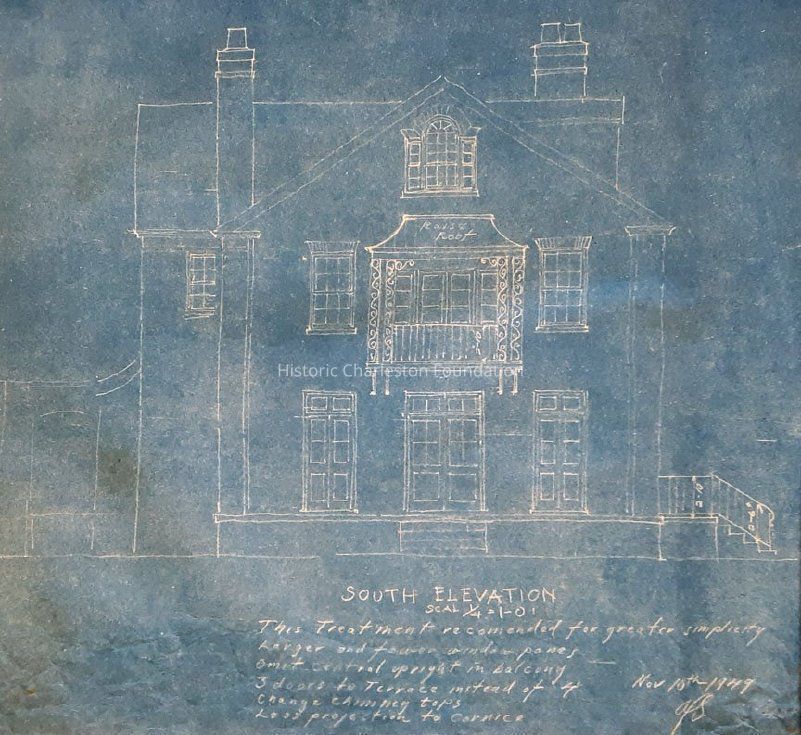 Roof
Historic Charleston Foundation
SOUTH ELEVATION
SCAL ¼ = 1-0
This Treatment recomended for greater simplicity
Larger and fewer window panes
Omit central upright in balcony
3 doors to Terrace instead of 4
Change chimney tops
Less projection to cornice
Nov 10th 1949